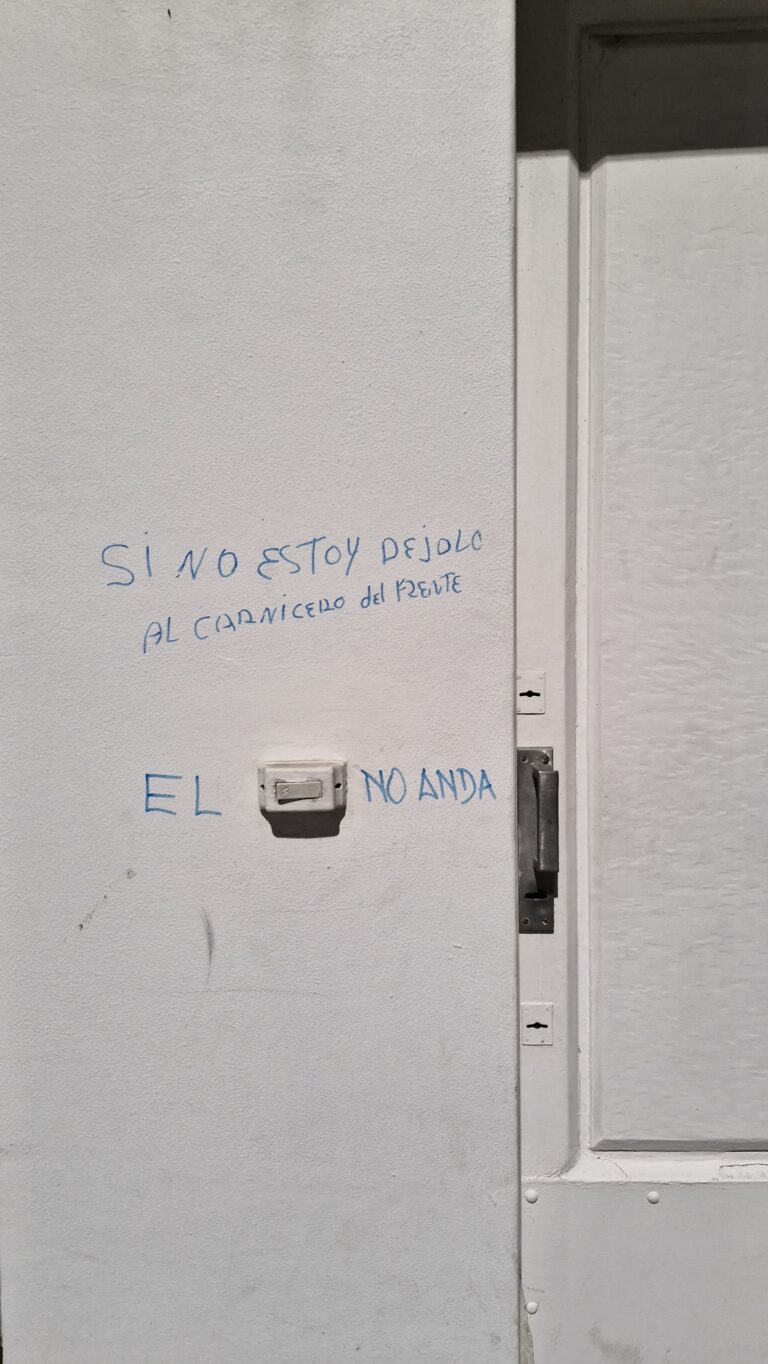 Si NO ESTOY DEJOLO
AL CARNICERO del FRENTE
EL NO ANDA